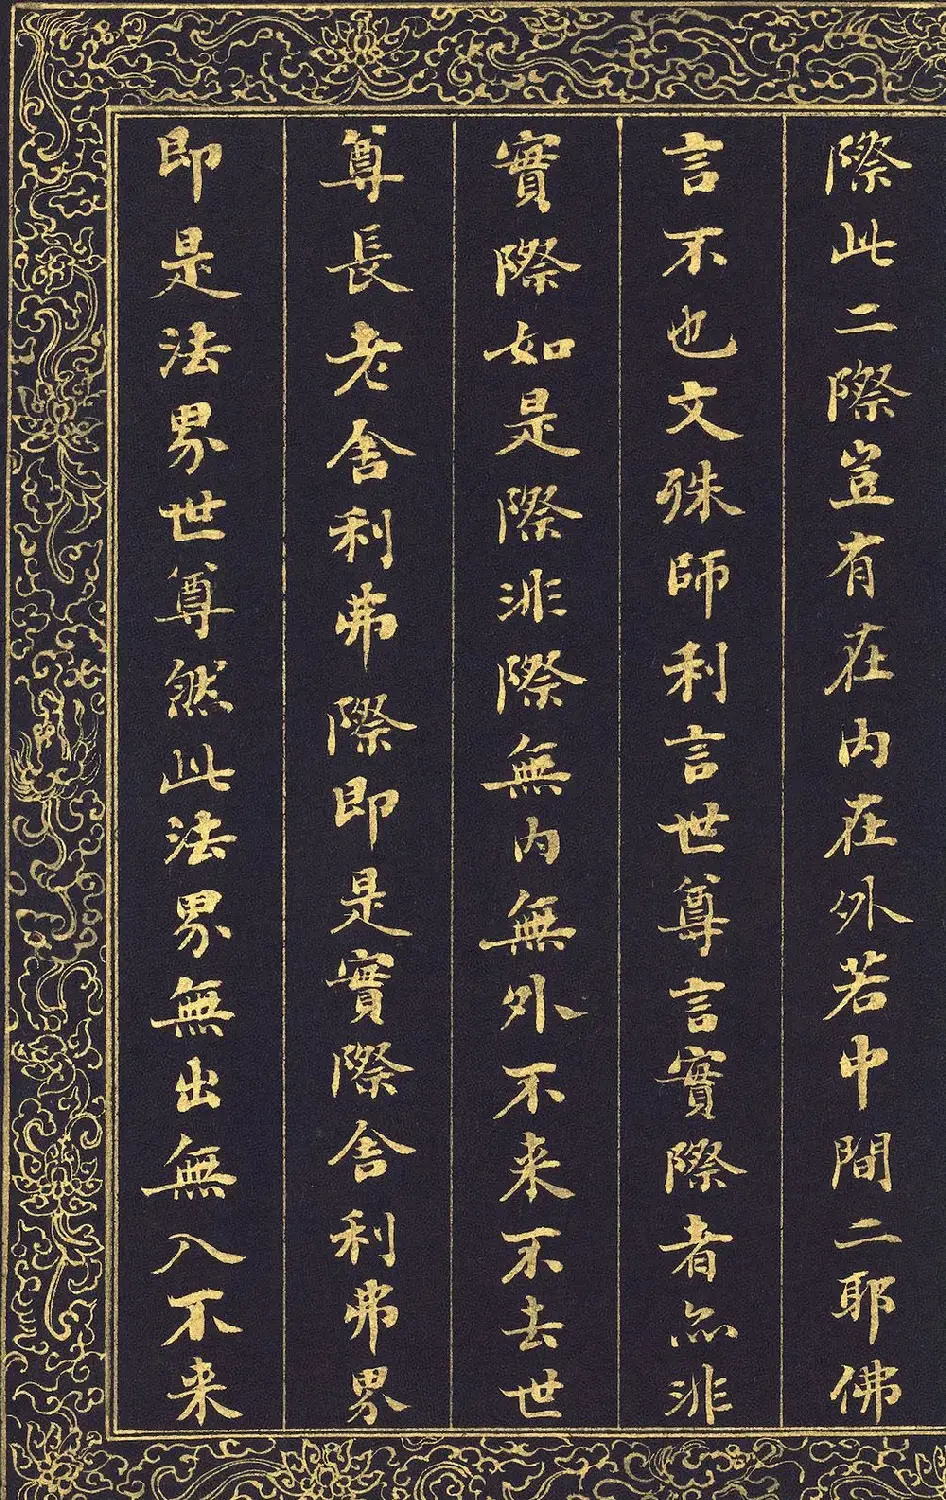 際此二際豈有在内在外若中間二耶佛
言不也文殊師利言世尊言實際者亦非
實際如是際非際無内無外不来不去世
尊長老舍利弗際即是實際舍利弗界
即是法界世尊然此法界無出無入不来